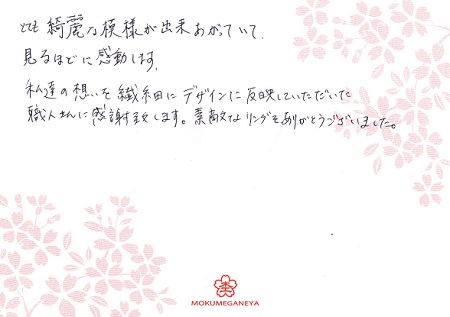 とても 綺麗な模様が出来あがっていて、
見るほどに感動します。
私達の想いを繊細にデザインに反映していただいた
職人さんに感謝致します。素敵なリングをありがとうございました。
MOKUMEGANEYA